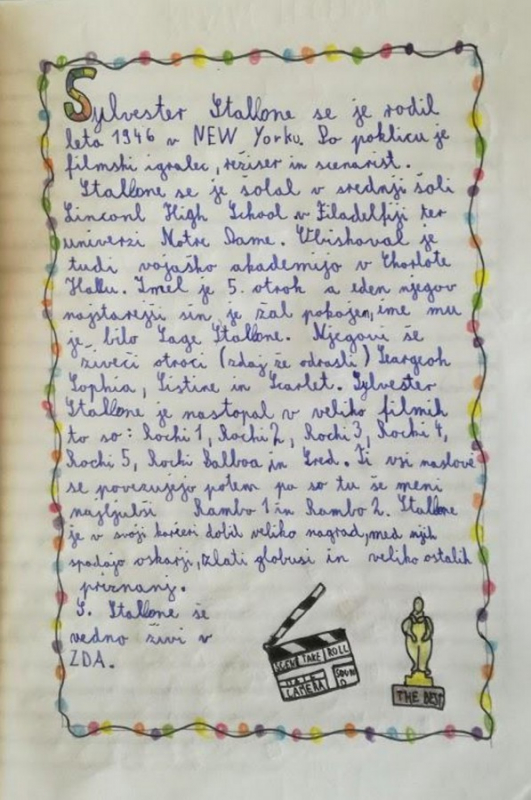 Sylvester Stallone se je rodil
leta 1946 v NEW Yorku. Po poklicu je
filmski igralec, režiser in scenarist.
Stallone se je šolal v srednji šoli
Linconl High School v Filadelfiji ter
univerzi Notre Dame. Obiskoval je
tudi vojaško akademijo v Chorlote
Hallu. Imel je 5. otrok a eden njegov
najstarejši sin je žal pokojen, ime mu
je bilo Sage Stallone. Njegovi še
živeči otroci (zdaj že odrasli) Seargeoh
Sophia, Sistine in Scarlet. Sylvester
Stallone je nastopal v veliko filmih
to so: Rocki 1, Rocki 2, Rocki 3, Rocki 4,
Rocki 5, Rocki Balboa in Creed. Ti vsi naslovi
se povezujejo potem pa so tu še meni
najljubši Rambo 1 in Rambo 2. Stallone
je v svoji karieri dobil veliko nagrad, med njih
spadajo oskarji, zlati globusi in veliko ostalih
priznanj.
S. Stallone še
vedno živi v
ZDA.
SCEN TAKE ROLL
DATE SOUND
CAMERA
THE BEST